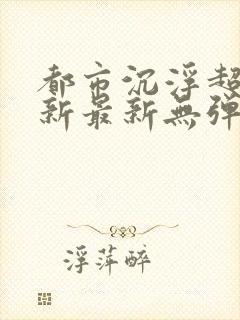 都市沉浮超
新最新無弹
浮萍醉